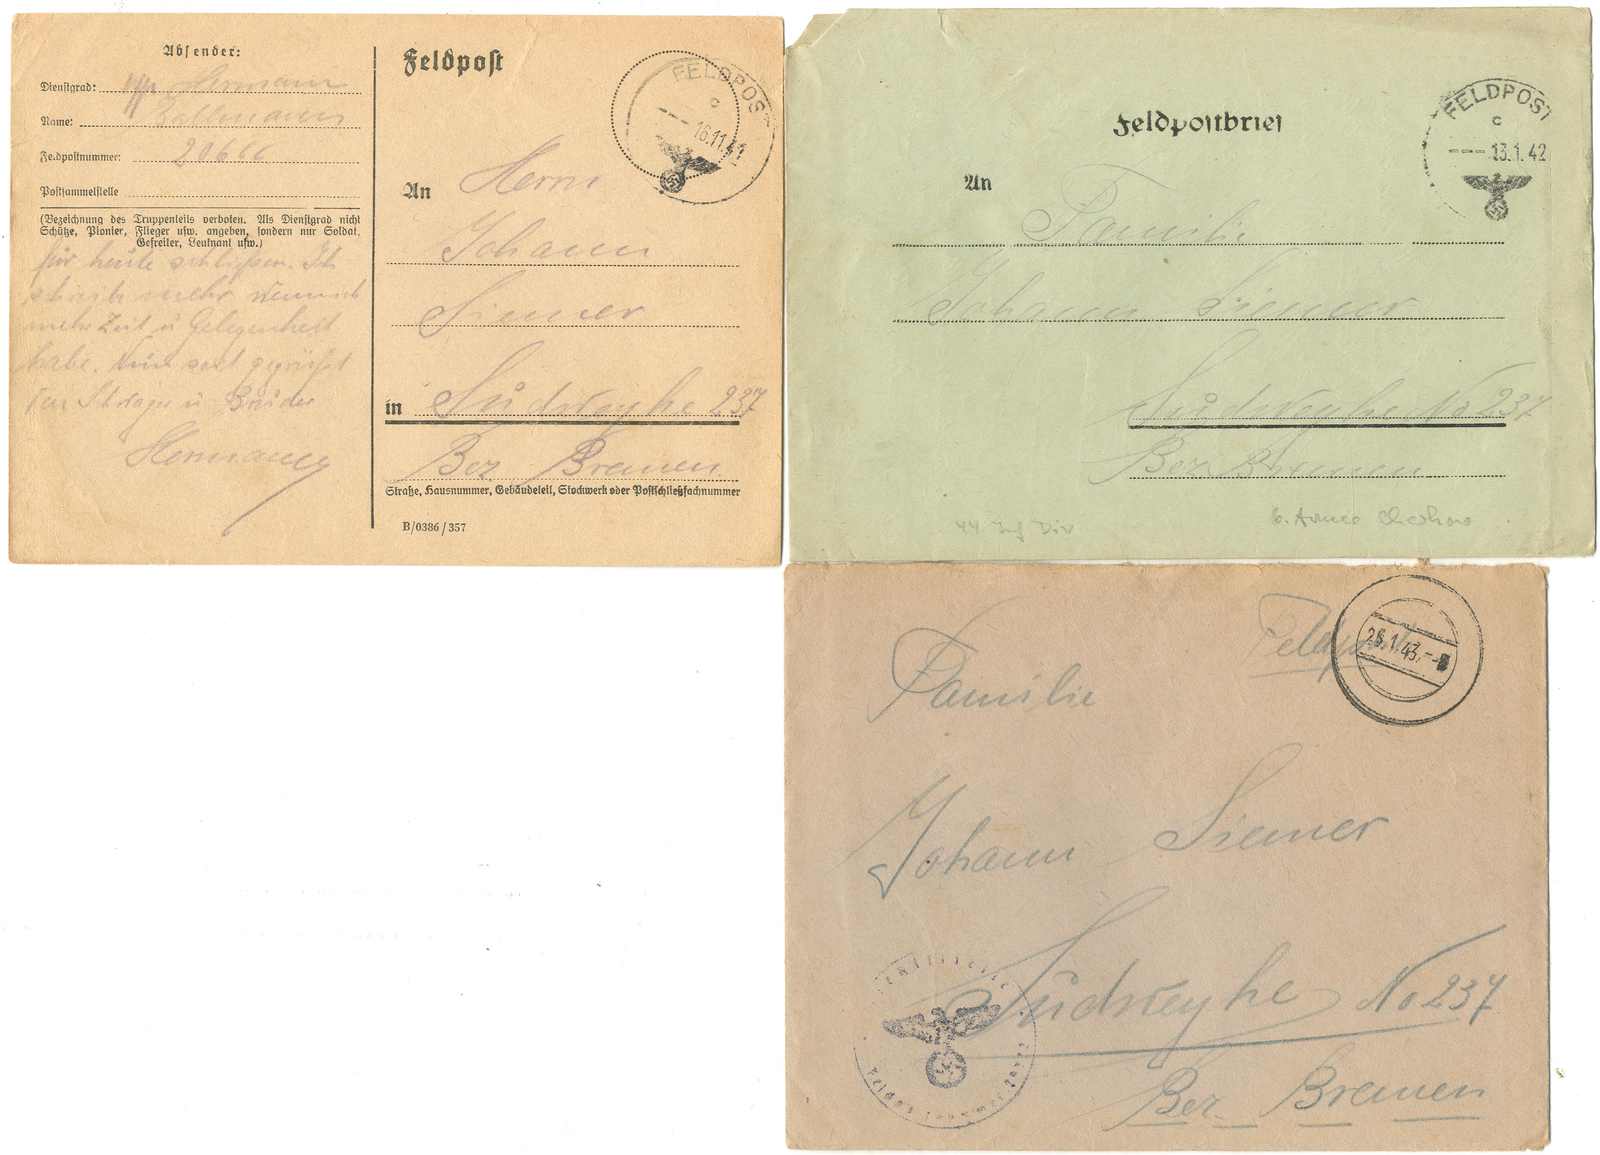 Absender:
Dienstgrad: Hermann
Name:
Feldpostnummer: 20666
Postsammelstelle
(Bezeichnung des Truppenteils verboten. Als Dienstgrad nicht
Schütze, Pionier, Flieger usw. angeben, sondern nur Soldat,
Gefreiter, Leutnant usw.)
für heute schließen. Ich
mehr
mehr Zeit u Gelegenheit
habe. Nun seit gegrüßt
u Bruder
Hermann
Feldpost
FELDPOST
c
16.11.41
An Herrn
Johann
Siemer
in Südweyhe 237
Bez Bremen
Straße, Hausnummer, Gebäudeteil, Stockwerk oder Postschließfachnummer
B/0386/357
Feldpostbrief
FELDPOST
c
13.1.42
An Familie
Johann Siemer
Südweyhe No 237
Bez Bremen
44. Inf Div
6. Armee
Feldpost
25.1.43
Familie
Johann Siemer
Südweyhe No 237
Bez Bremen